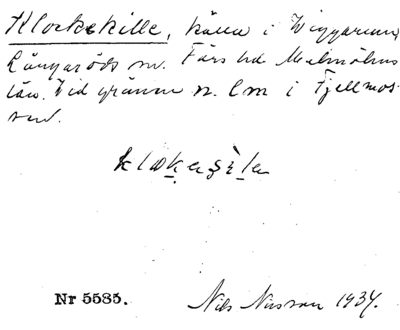 Klockekille, källa i Viggarum,
Långaröds sn. Färs hd Malmöhus
län. Vid gränsen n. om i Fjellmos-
sen.
Nr 5585. Nils Nilsson 1934.